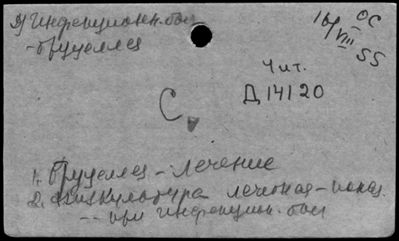 3) Инфекцион. бол
- бруцеллез
16/VIII 55
ОС
Чит.
Д 14120
С
1. Бруцеллез - лечение
2. Физкультура лечебная - показ.
-- при инфекцион. бол